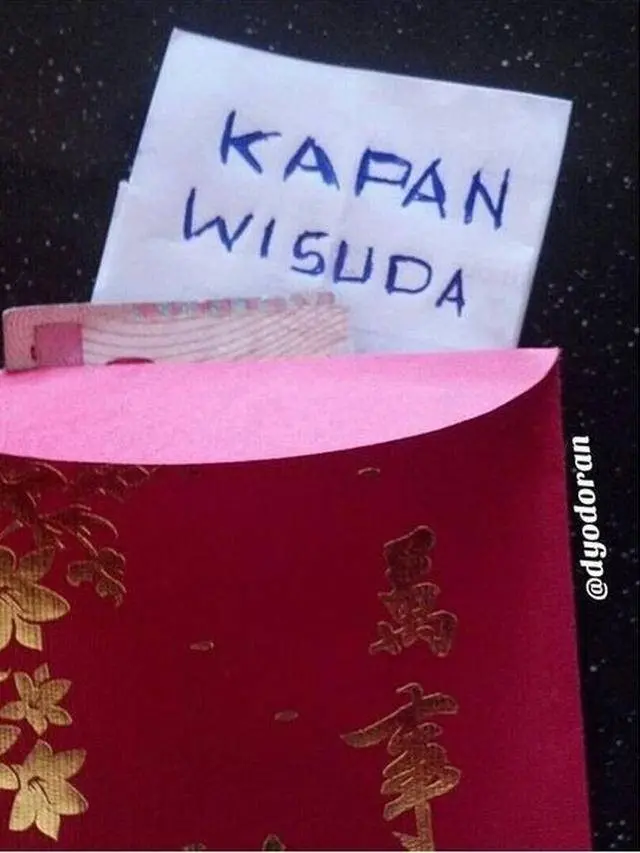 KAPAN
WISUDA
萬
事
@dyodoran